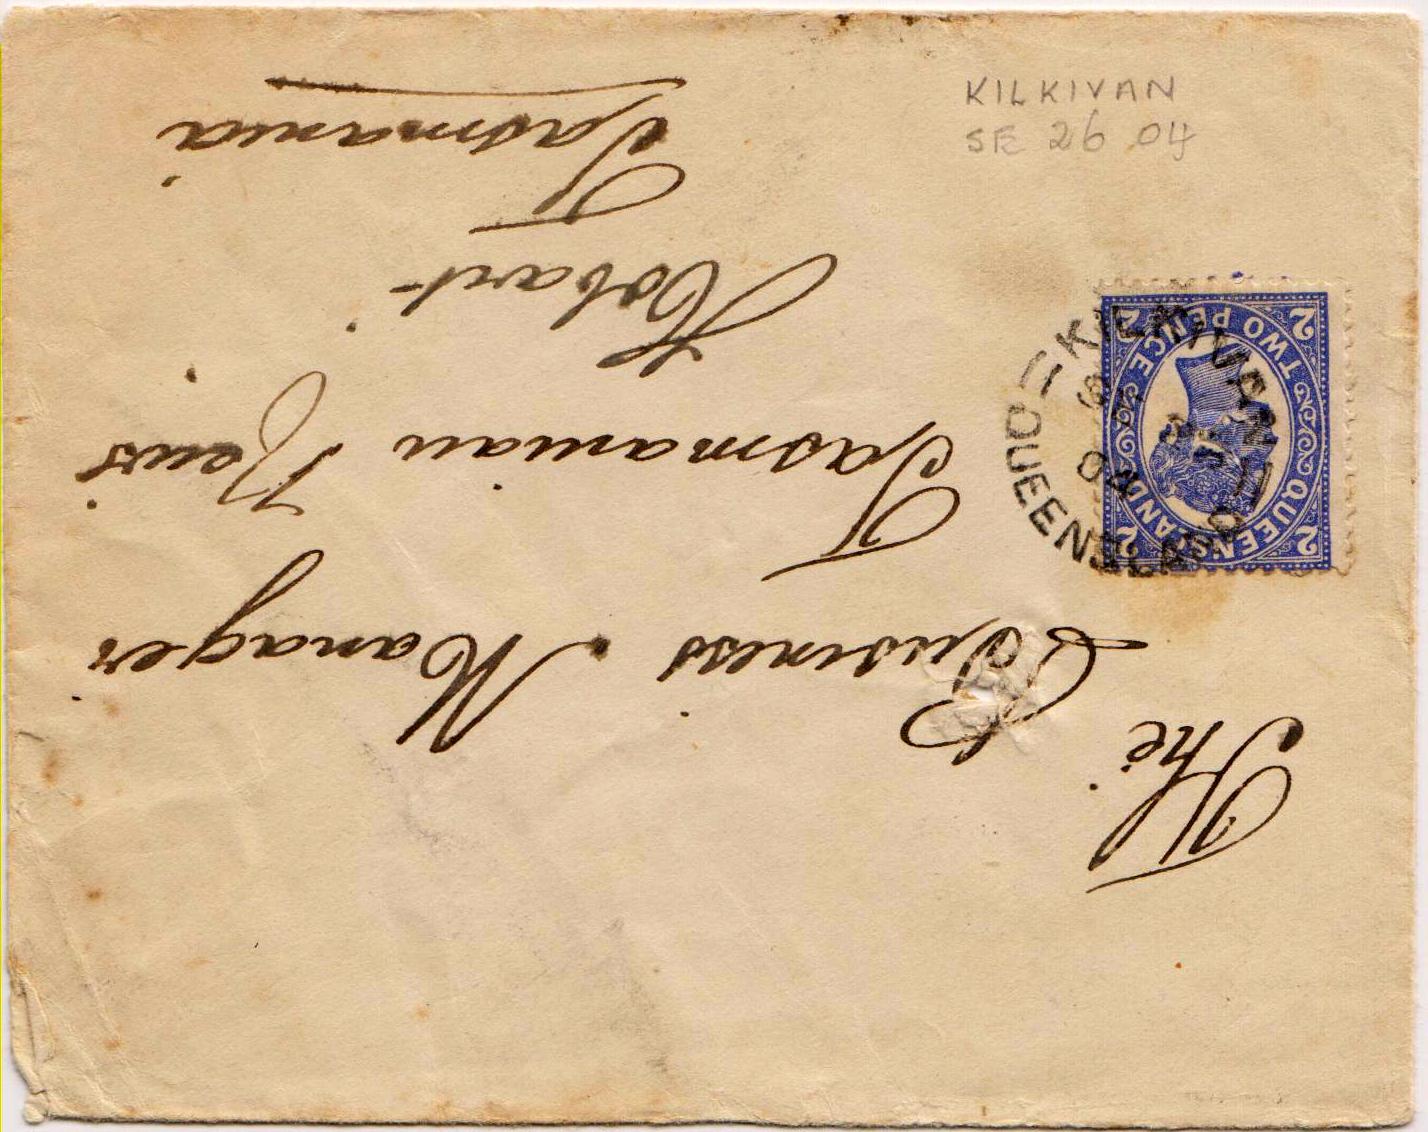 KILKIVAN
SE 26 04
The
Business Manager
Tasmanian News
Hobart
Tasmania
QUEENSLAND
TWO PENCE
2 2
2 2
KILKIVAN
04
QUEENSLAND